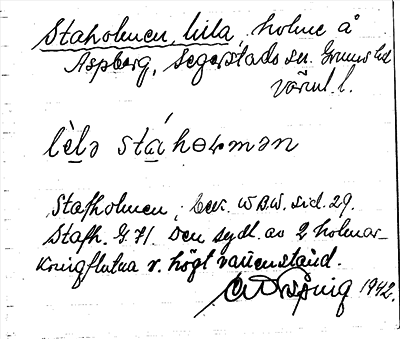 Staholmen, lilla, holme å
Aspberg, Segerstads sn. Grums hd
Värml. l.
lèlə stáhoɽmən
Stafholmen, bev. W.B.W. sid. 29.
Stafh. G. 71. Den sydl. av 2 holmar
kringflutna v. högt vattenstånd.
1942.